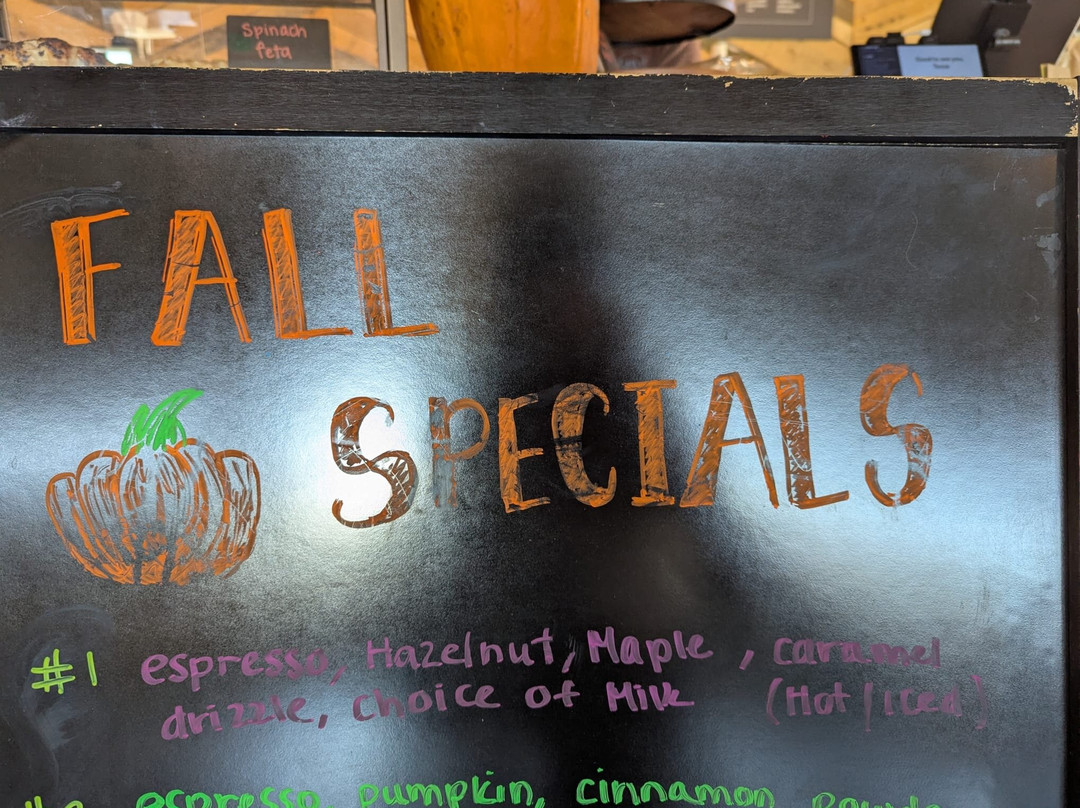 Spinach
feta
FALL
SPECIALS
#1 espresso, Hazelnut, Maple, caramel
drizzle, choice of Milk (Hot/Iced)
espresso, pumpkin, cinnamon